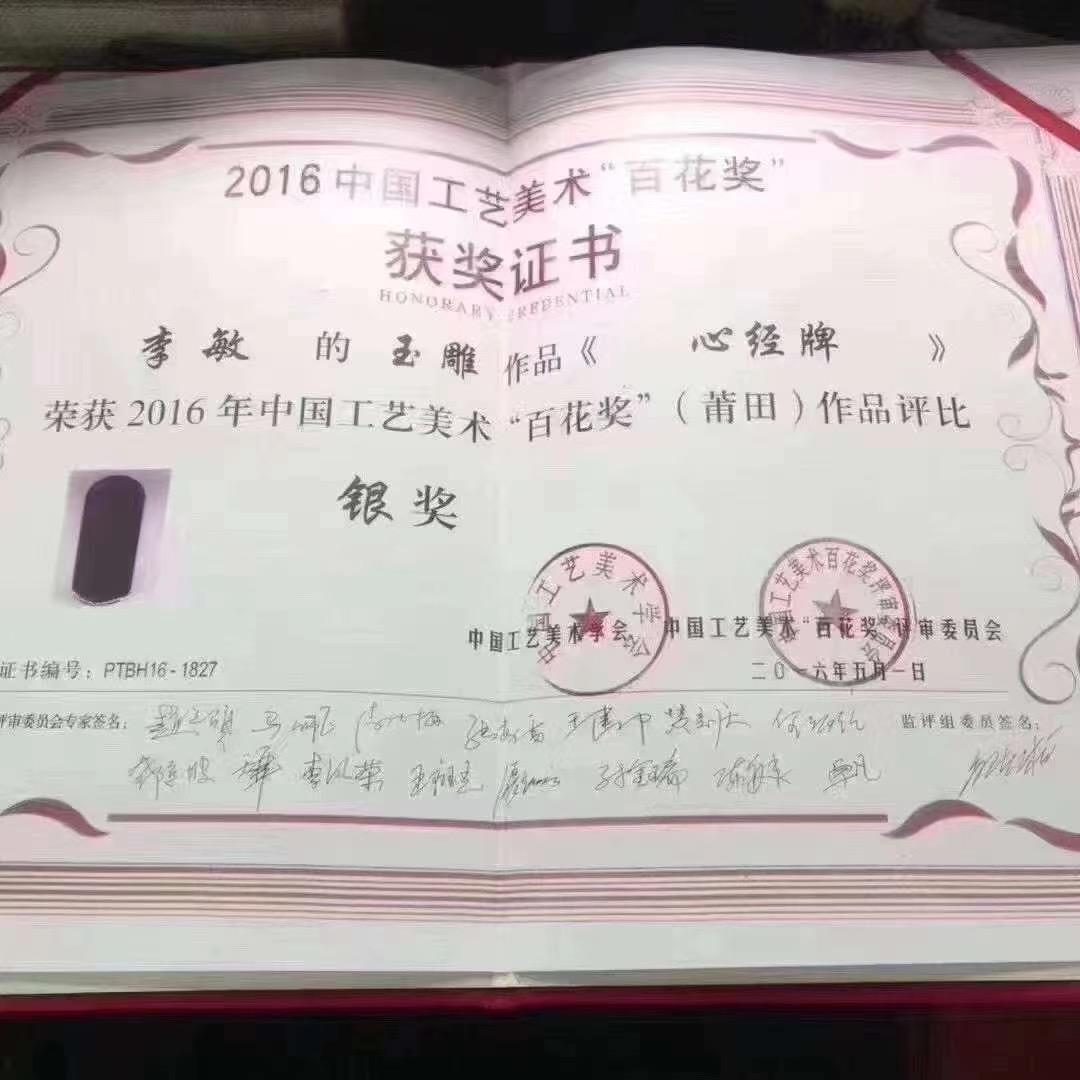 2016中国工艺美术“百花奖”
获奖证书
HONORARY CREDENTIAL
李敏 的 玉雕 作品《 心经牌 》
荣获2016年中国工艺美术“百花奖”（莆田）作品评比
银奖
中国工艺美术学会
中国工艺美术百花奖评审委员会
中国工艺美术学会 中国工艺美术“百花奖”评审委员会
证书编号：PTBH16-1827 二〇一六年五月一日
评审委员会专家签名： 监评组委员签名：